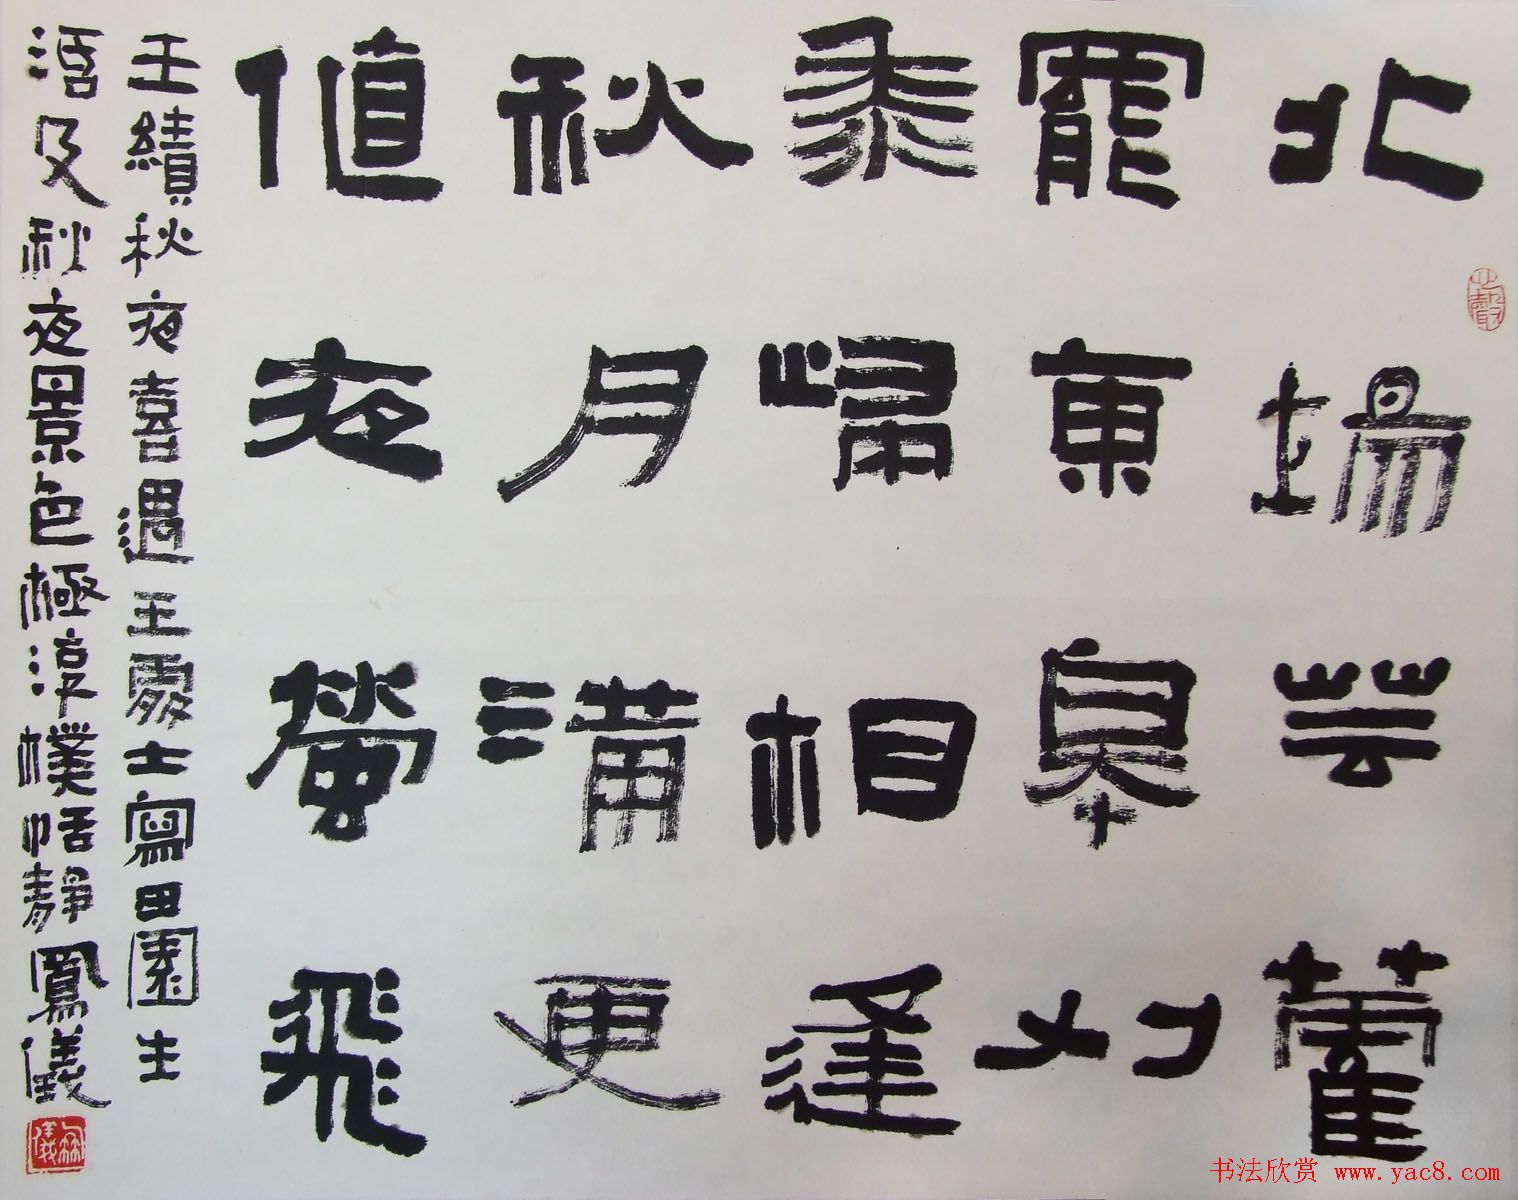 北場芸藿
罷東皋刈
黍歸相逢
秋月滿更
值夜螢飛
王績秋夜喜遇王處士寫田園生
活及秋夜景色極淳樸恬靜鳳儀
书法欣赏 www.yac8.com